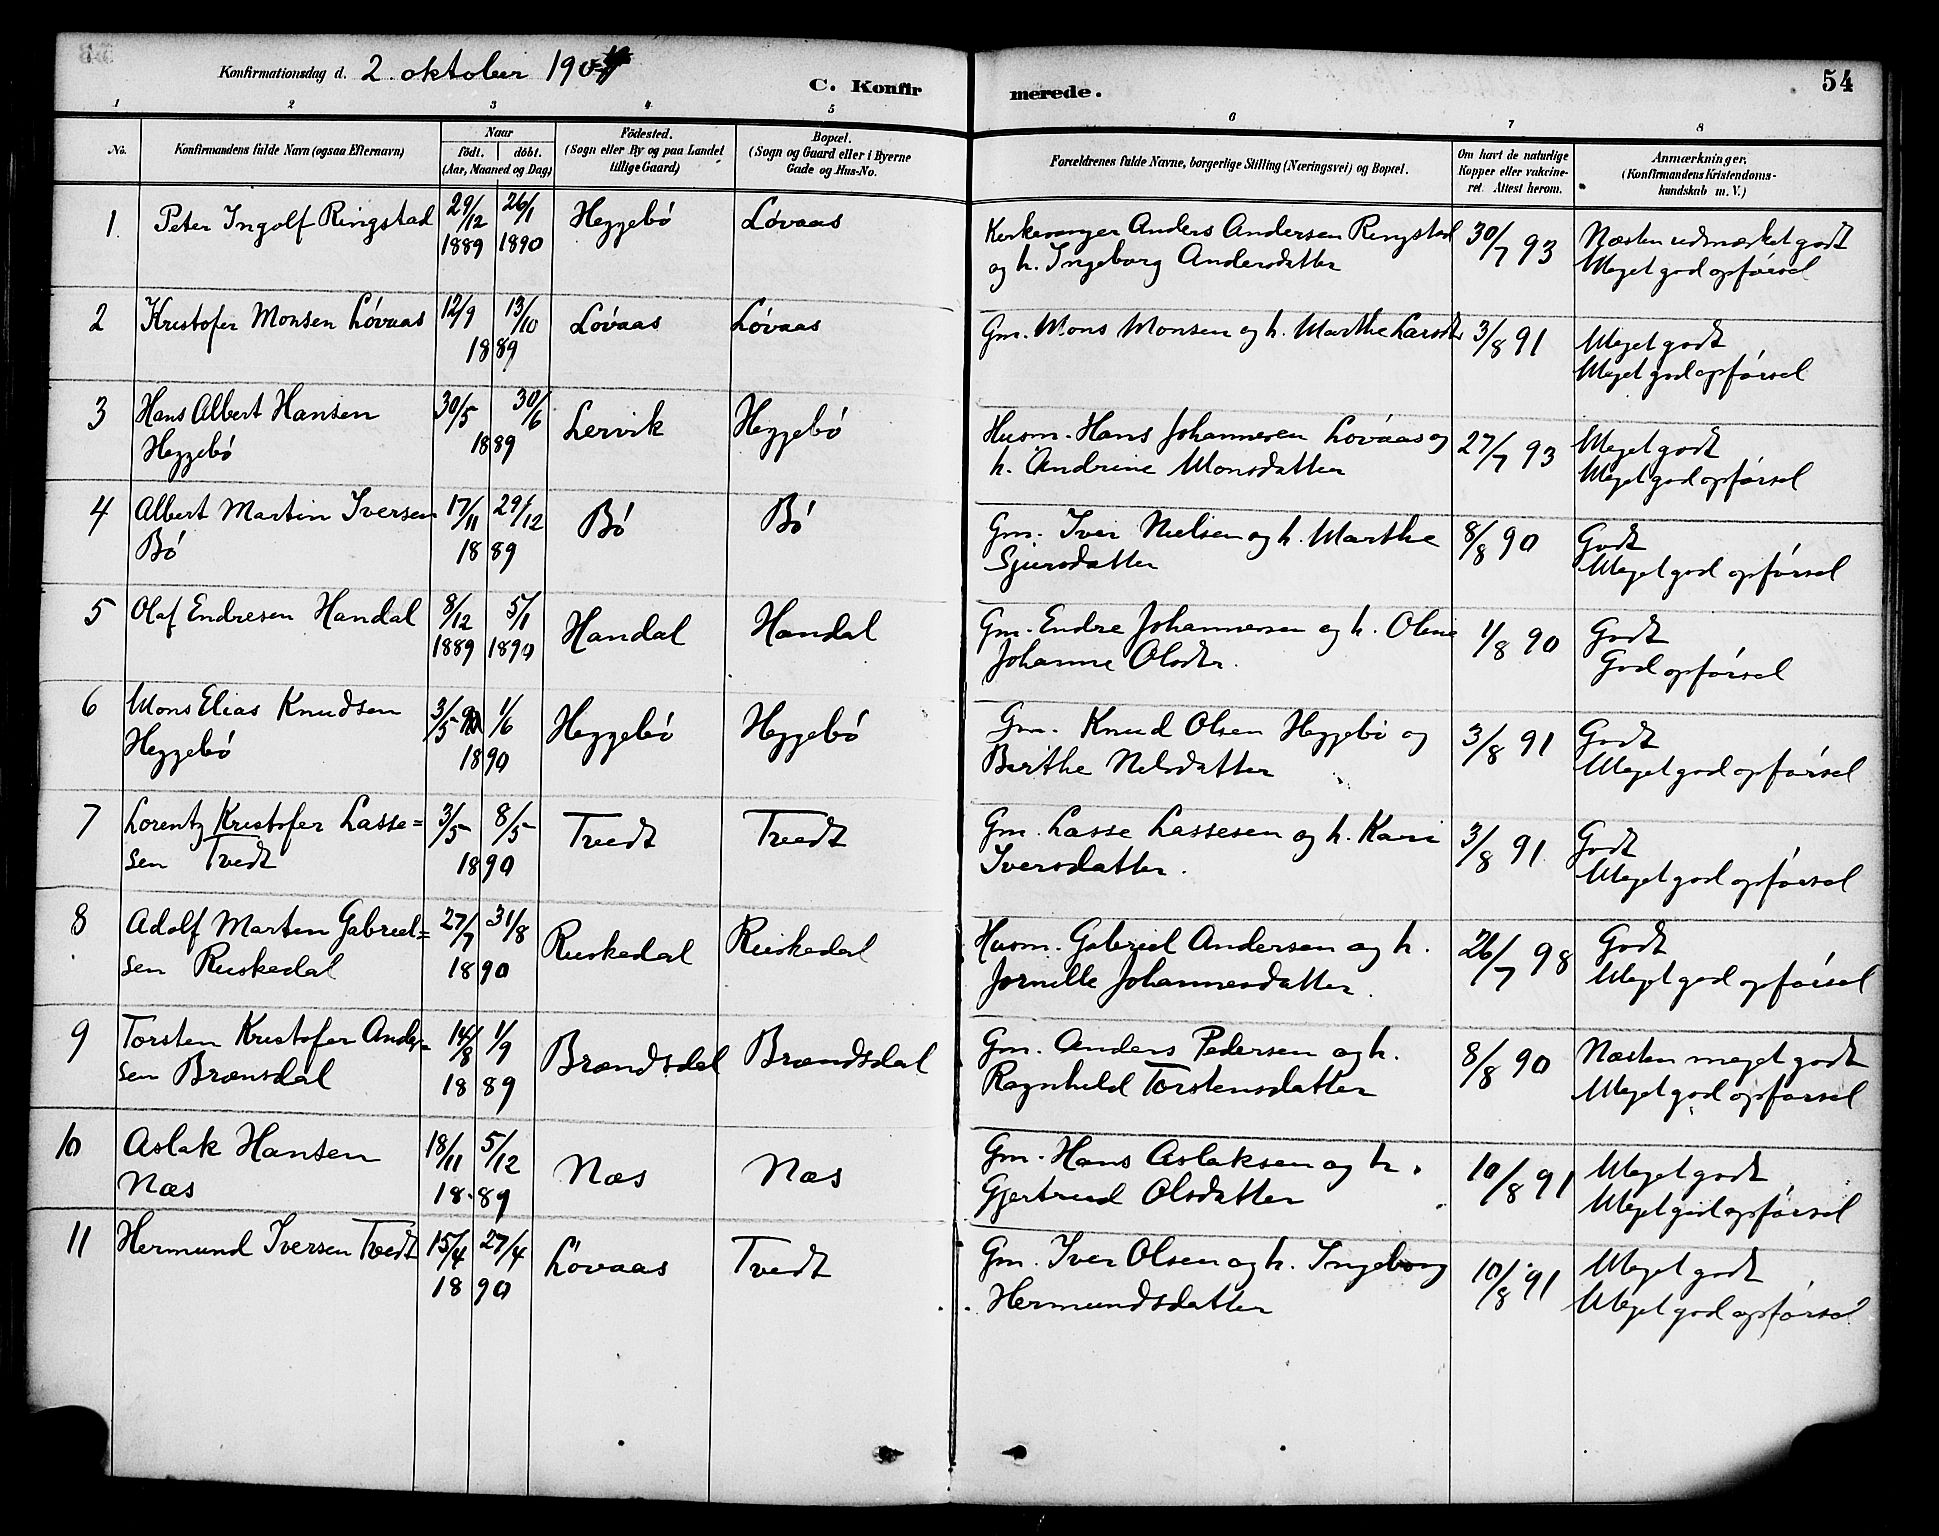 Konfirmationsdag d. 2. oktober 1904
C. Konfirmerede.
54
1 2 3 4 5 6 7 8
No.
Konfirmandens fulde Navn (ogsaa Efternavn)
Naar
födt. döbt.
(Aar, Maaned og Dag)
Födested.
(Sogn eller By og paa Landet
tillige Gaard)
Bopæl.
(Sogn og Gaard eller i Byerne
Gade og Hus-No.
Forældrenes fulde Navne, borgerlige Stilling (Næringsvei) og Bopæl.
Om havt de naturlige
Kopper eller vakcine-
ret. Attest herom.
Anmærkninger.
(Konfirmandens Kristendoms-
kundskab m. V.)
1 Peter Ingolf Ringstad 29/12 1889 26/1 1890 Heggebö Lövaas
Kirkesanger Anders Andersen Ringstad
og h. Ingeborg Andersdatter
30/7 93 Næsten udmærket godt
Meget god opførsel
2 Kristofer Monsen Lövaas 12/9 13/10 1889 Lövaas Lövaas
Gm. Mons Monsen og h. Marthe Larsdt.
3/8 91 Meget godt
Meget god opførsel
3 Hans Albert Hansen
Heggebö
30/5 30/6 1889 Lervik Heggebö
Husm. Hans Johannesen Lövaas og
h. Andrine Monsdatter
27/7 93 Meget godt
Meget god opførsel
4 Albert Martin Iversen
Bö
17/11 29/12 1889 Bö Bö
Gm. Iver Nielsen og h. Marthe
Sjursdatter
8/8 90 Godt
Meget god opførsel
5 Olaf Endresen Handal 8/12 1889 5/1 1890 Handal Handal
Gm. Endre Johannesen og h. Oline
Johanne Olsdtr.
1/8 90 Godt
God opførsel
6 Mons Elias Knudsen
Heggebö
3/5 1/6 1890 Heggebö Heggebö
Gm. Knud Olsen Heggebö og
Berthe Nilsdatter
3/8 91 Godt
Meget god opførsel
7 Lorentz Kristofer Lasse=
sen Tvedt
3/5 8/5 1890 Tvedt Tvedt
Gm. Lasse Lassesen og h. Kari
Iversdatter.
3/8 91 Godt
Meget god opførsel
8 Adolf Martin Gabriel=
sen Ruskedal
27/7 31/8 1890 Ruskedal Ruskedal
Husm. Gabriel Andersen og h.
Johannesdatter.
26/7 98 Godt
Meget god opførsel
9 Torsten Kristofer Ander=
sen Brænsdal
14/8 1/9 1889 Brændsdal Brændsdal
Gm. Anders Pedersen og h.
Ragnhild Torstensdatter
8/8 90 Næsten meget godt
Meget god opførsel
10 Aslak Hansen
Næs
18/11 5/12 1889 Næs Næs
Gm. Hans Aslaksen og h.
Gjertrud Olsdatter
10/8 91 Meget godt
Meget god opførsel
11 Hermund Iversen Tvedt 15/4 27/4 1890 Lövaas Tvedt
Gm. Iver Olsen og h. Ingeborg
Hermundsdatter
10/8 91 Meget godt
Meget god opførsel